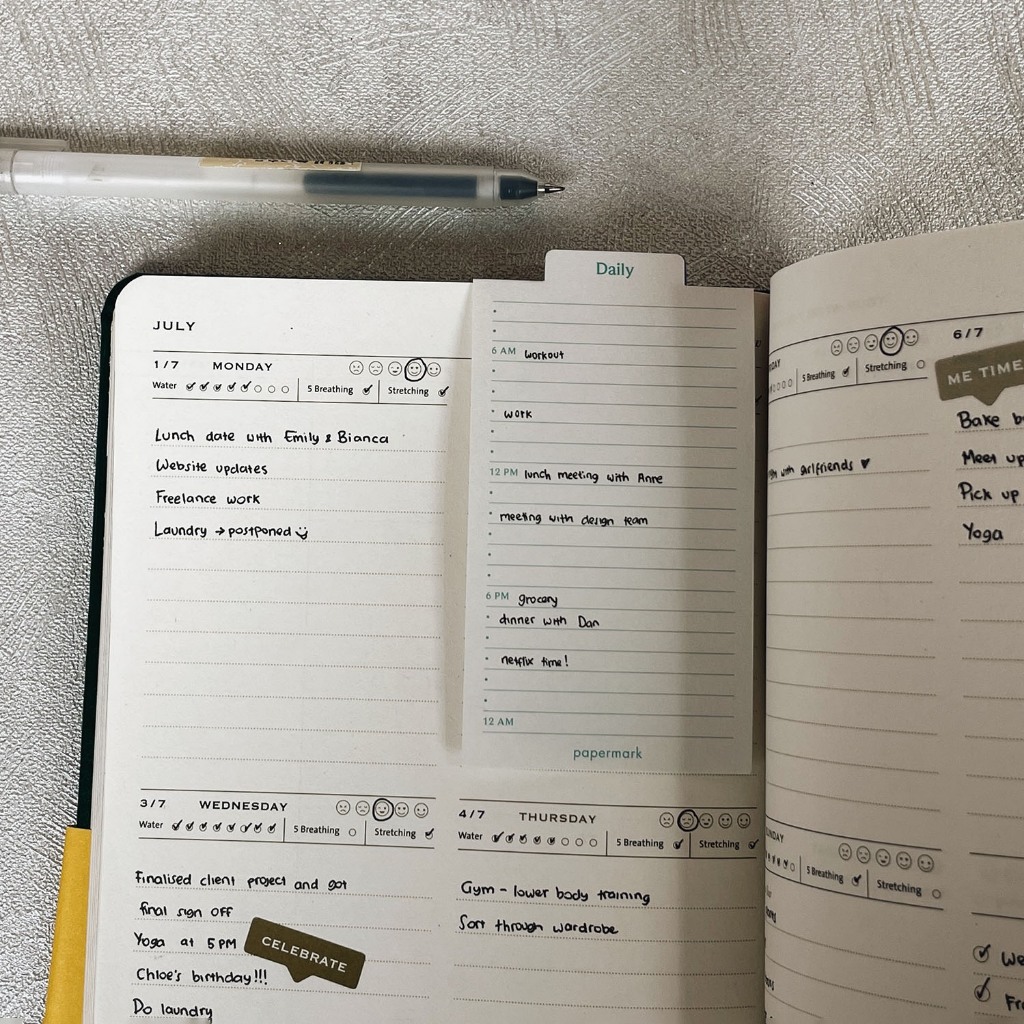 Daily
JULY
1/7 MONDAY
Water 5 Breathing Stretching
Lunch date with Emily & Bianca
Website updates
Freelance work
Laundry → postponed
6 AM workout
work
12 PM lunch meeting with Anne
meeting with design team
6 PM grocery
dinner with Dan
netflix time!
12 AM
papermark
3/7 WEDNESDAY
Water 5 Breathing Stretching
Finalised client project and got
final sign off
Yoga at 5 PM
CELEBRATE
Chloe's birthday!!!
Do laundry
4/7 THURSDAY
Water 5 Breathing Stretching
Gym - lower body training
Sort through wardrobe
5 Breathing Stretching
with girlfriends ♥
5 Breathing Stretching
6/7
ME TIME
Bake
Meet up
Pick up
Yoga